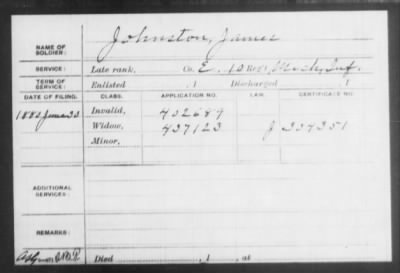 NAME OF SOLDIER: Johnston, James
SERVICE: Late rank, Co. E, 10 Reg't Mich. Inf.
TERM OF SERVICE: Enlisted , 1 Discharged , 1
DATE OF FILING. CLASS. APPLICATION NO. LAW. CERTIFICATE NO.
1882 June Invalid, 452689
Widow, 437123 J 334351
Minor,
ADDITIONAL SERVICES:
REMARKS:
Died , 1 , at